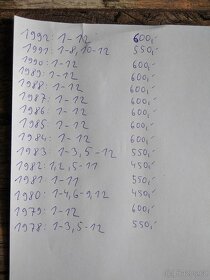 1992: 1-12 600,-
1991: 1-8, 10-12 550,-
1990: 1-12 600,-
1989: 1-12 600,-
1988: 1-12 600,-
1987: 1-12 600,-
1986: 1-12 600,-
1985: 1-12 600,-
1984: 1-12 600,-
1983: 1-3, 5-12 550,-
1982: 1,2,5-11 450,-
1981: 1-11 550,-
1980: 1-4, 6-9, 12 450,-
1979: 1-12 600,-
1978: 1-3, 5-12 550,-